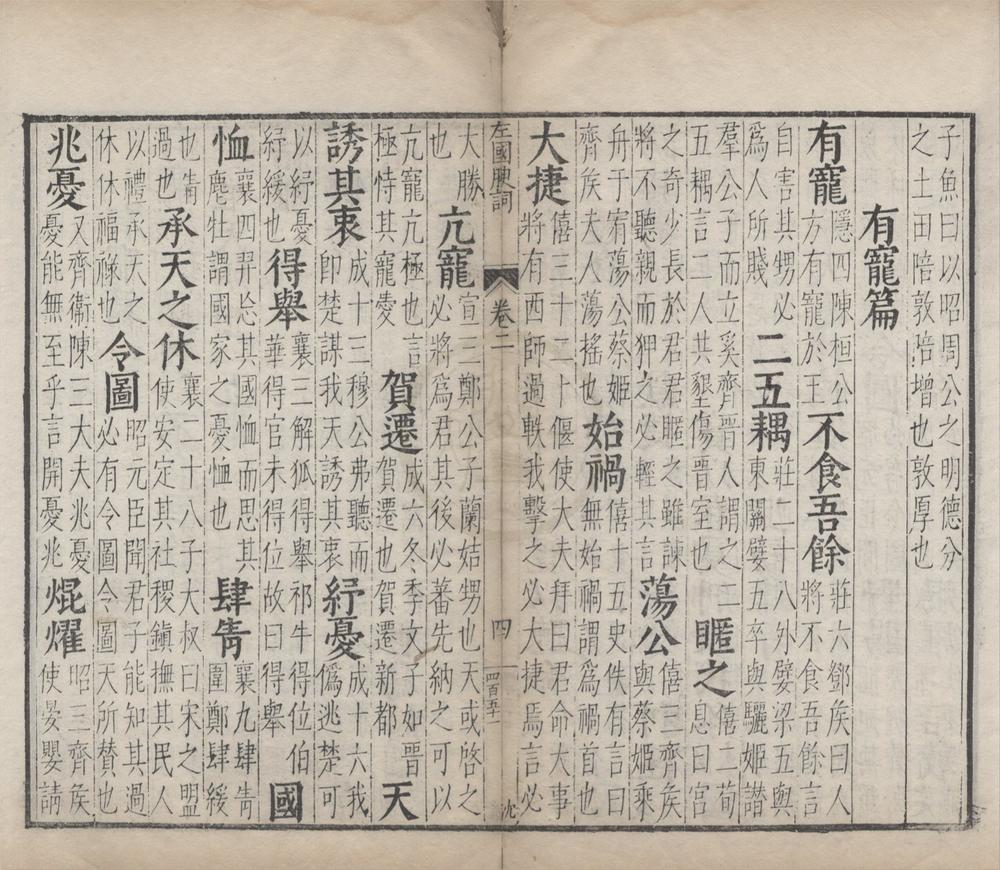 子魚曰以昭周公之明德分
之土田陪敦陪增也敦厚也
有寵篇
有寵
隱四陳桓公
方有寵於王
不食吾餘
莊六鄧侯曰人
將不食吾餘言
自害其甥必
爲人所賤
二五耦
莊二十八外嬖梁五與
東關嬖五卒與驪姬譖
羣公子而立奚齊晉人謂之二
五耦言二人共墾傷晉室也
暱之
僖二荀
息曰宮
之奇少長於君君暱之雖諫
將不聽親而狎之必輕其言
蕩公
僖三齊侯
與蔡姬乘
舟于宥蕩公蔡姬
齊侯夫人蕩搖也
始禍
僖十五史佚有言曰
無始禍謂爲禍首也
大捷
僖三十二卜偃使大夫拜曰君命大事
將有西師過軼我擊之必大捷焉言必
左國腴詞
卷二
四
四百五十
沈
大勝
也
亢寵
宣三鄭公子蘭姞甥也天或啓之
必將爲君其後必蕃先納之可以
亢寵亢極也言
極恃其寵愛
賀遷
成六冬季文子如晉
賀遷也賀遷新都
天
誘其衷
成十三穆公弗聽而
即楚謀我天誘其衷
紓憂
成十六我
僞逃楚可
以紓憂
紓緩也
得舉
襄三解狐得舉祁牛得位伯
華得官未得位故曰得舉
國
恤
襄四羿忘其國恤而思其
麀牡謂國家之憂恤也
肆眚
襄九肆眚
圍鄭肆緩
也眚
過也
承天之休
襄二十八子大叔曰宋之盟
使安定其社稷鎮撫其民人
以禮承天之
休休福祿也
令圖
昭元臣聞君子能知其過
必有令圖令圖天所贊也
兆憂
又齊衛陳三大夫兆憂
憂能無至乎言開憂兆
焜燿
昭三齊侯
使晏嬰請